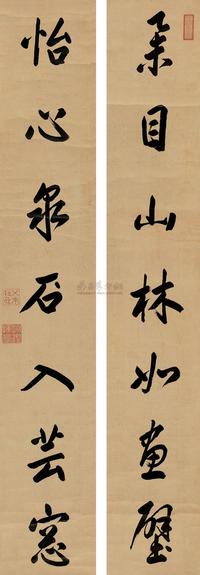 柔目山林如畫壁
怡心泉石入芸窓